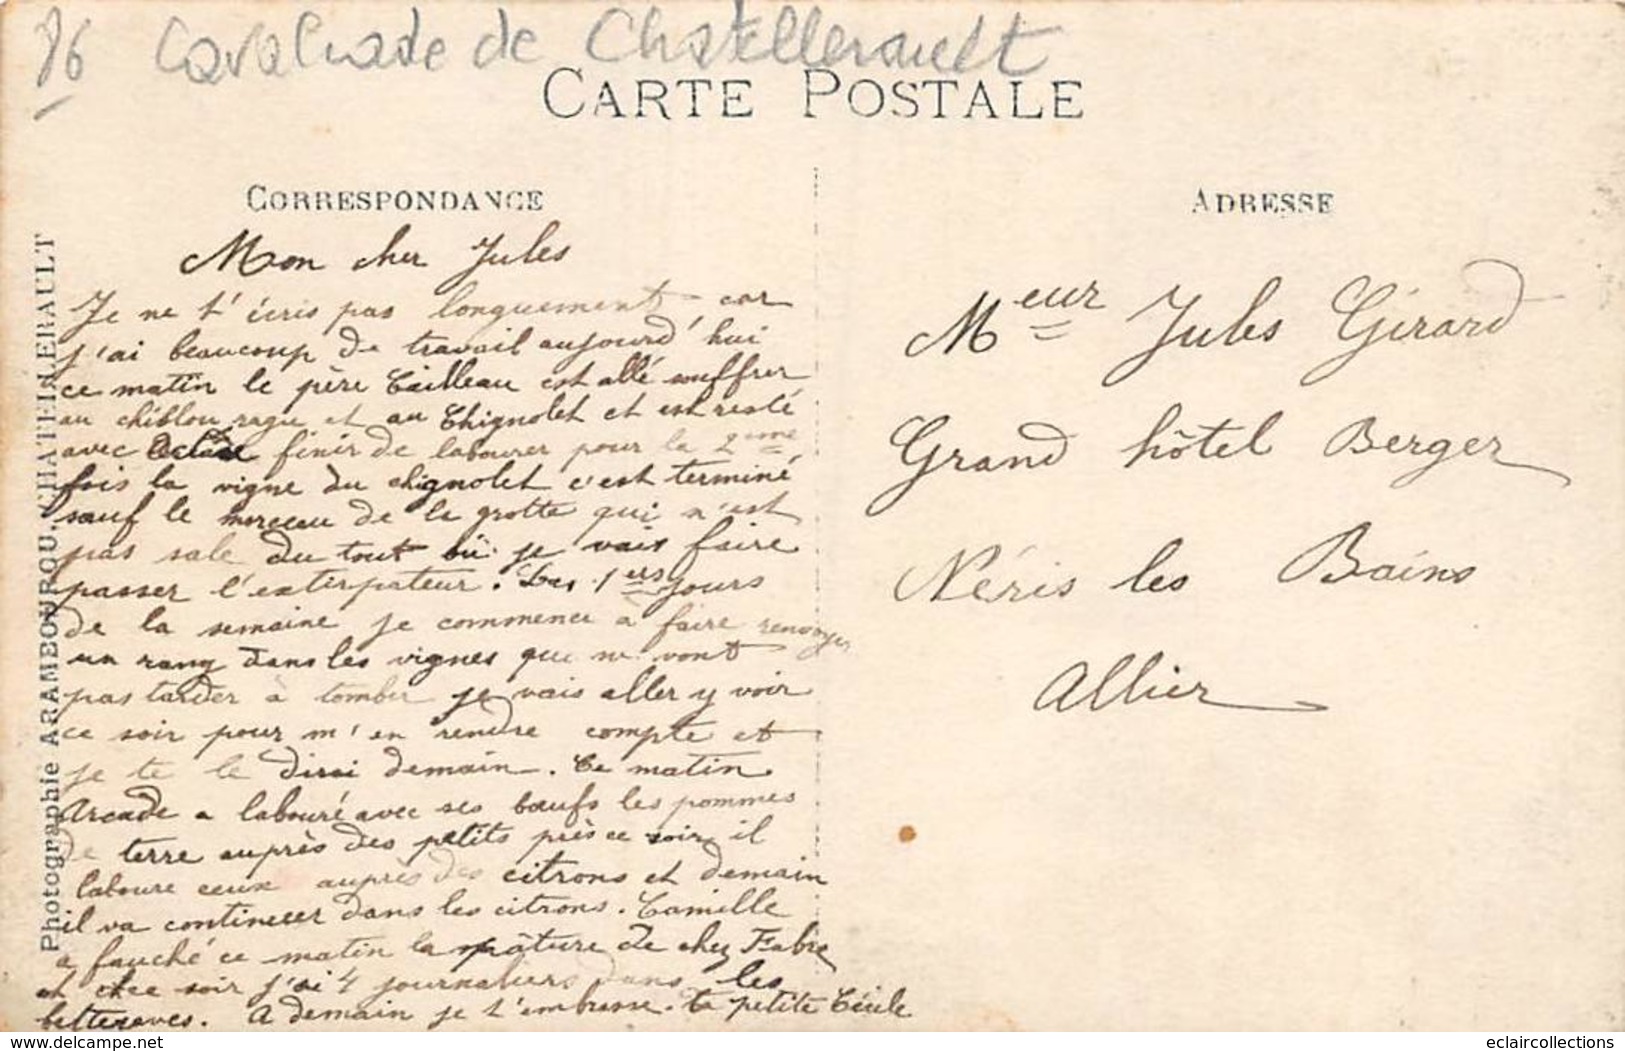 86 Cavalcade de Chatellerault
CARTE POSTALE
CORRESPONDANCE
Mon cher Jules
Je ne t'écris pas longuement car
j'ai beaucoup de travail aujourd'hui
ce matin le père Tailleau est allé souffrer
au et au Chignolet et est resté
avec finir de labourer pour la 2eme
fois la vigne du chignolet c'est terminé
sauf le morceau de la grotte qui n'est
pas sale du tout où je vais faire
passer l'extirpateur. Les 1ers jours
de la semaine je commence à faire renvoyer
un rang dans les vignes qui ne vont
pas tarder à tomber je vais aller y voir
ce soir pour m'en rendre compte et
je te le dirai demain. Ce matin
Arcade a labouré avec ses bœufs les pommes
de terre auprès des petits près ce soir il
laboure ceux auprès des citrons et demain
il va continuer dans les citrons. Camille
a fauché ce matin la pâture de chez Fabre
et ce soir j'ai 4 journaliers dans les
betteraves. A demain je t'embrasse. ta petite Cécile
Photographie ARAMBOUROU, CHATELLERAULT
ADRESSE
Meur Jules Girard
Grand hôtel Berger
Néris les Bains
Allier
delcampe.net
eclaircollections